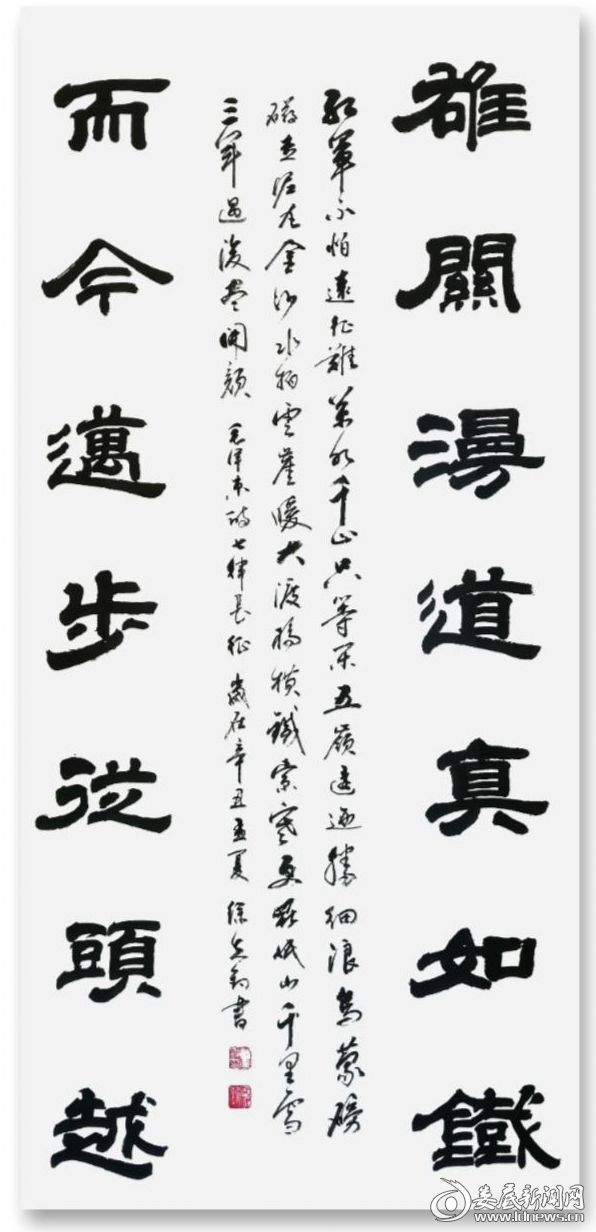 雄關漫道真如鐵
紅軍不怕遠征難萬水千山只等閑五嶺逶迤勝細浪烏蒙磅
礴走泥丸金沙水拍雲崖暖大渡橋橫鐵索寒更喜岷山千里雪
三軍過後盡開顏 毛澤東詩七律長征 歲在辛丑孟夏 徐書
而今邁步從頭越
娄底新闻网
www.ldnews.cn